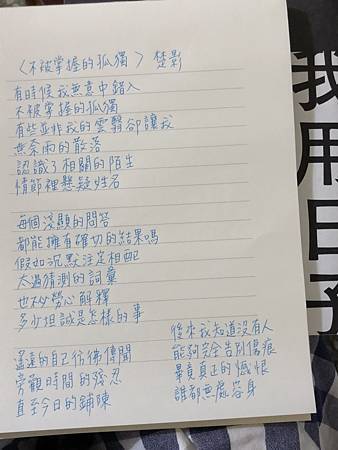 〈不被掌握的孤獨〉 楚影
有時候我無意中錯入
不被掌握的孤獨
有些並非我的雲翳卻讓我
無奈雨的散落
認識了相關的陌生
情節裡懸疑姓名
每個淺顯的問答
都能擁有確切的結果嗎
假如沉默注定相配
太過猜測的詞彙
也不必勞心解釋
多少坦誠是怎樣的事
遙遠的自己彷彿傳聞
旁觀時間的殘忍
直至今日的鋪陳
後來我知道沒有人
能夠完全告別傷痕
畢竟真正的憾恨
誰都無處容身
我用日子